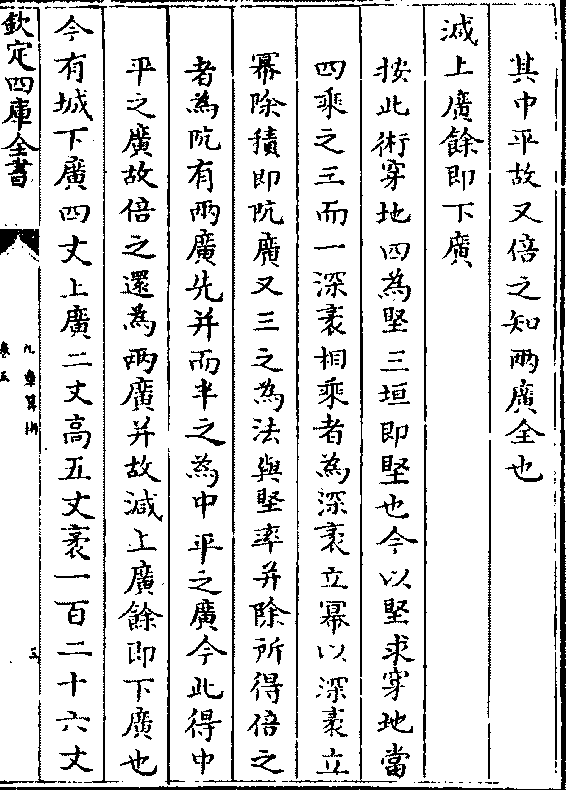 其中平故又倍之知兩廣全也
減上廣餘即下廣
按此術穿地四為堅三垣即堅也今以堅求穿地當
四乘之三而一深袤相乘者為深袤立冪以深袤立
冪除積即阬廣又三之為法與堅率并除所得倍之
者為阬有兩廣先并而半之為中平之廣今此得中
平之廣故倍之還為兩廣并故減上廣餘即下廣也
今有城下廣四丈上廣二丈高五丈袤一百二十六丈
欽定四庫全書
九章算術
卷五
三